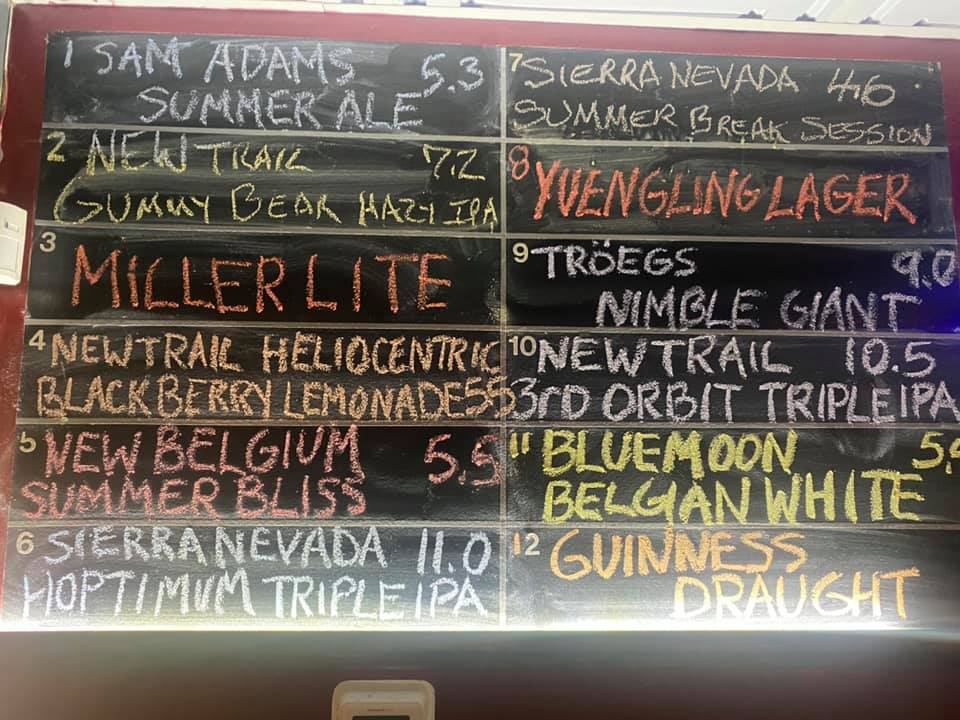 1 SAM ADAMS 5.3
SUMMER ALE
2 NEW TRAIL 7.2
GUMMY BEAR HAZY IPA
3 MILLER LITE
4 NEW TRAIL HELIOCENTRIC
BLACKBERRY LEMONADE 5.5
5 NEW BELGIUM 5.5
SUMMER BLISS
6 SIERRA NEVADA 11.0
HOPTIMUM TRIPLE IPA
7 SIERRA NEVADA 4.6
SUMMER BREAK SESSION
8 YUENGLING LAGER
9 TRÖEGS 9.0
NIMBLE GIANT
10 NEW TRAIL 10.5
3rD ORBIT TRIPLE IPA
11 BLUEMOON 5.4
BELGIAN WHITE
12 GUINNESS
DRAUGHT